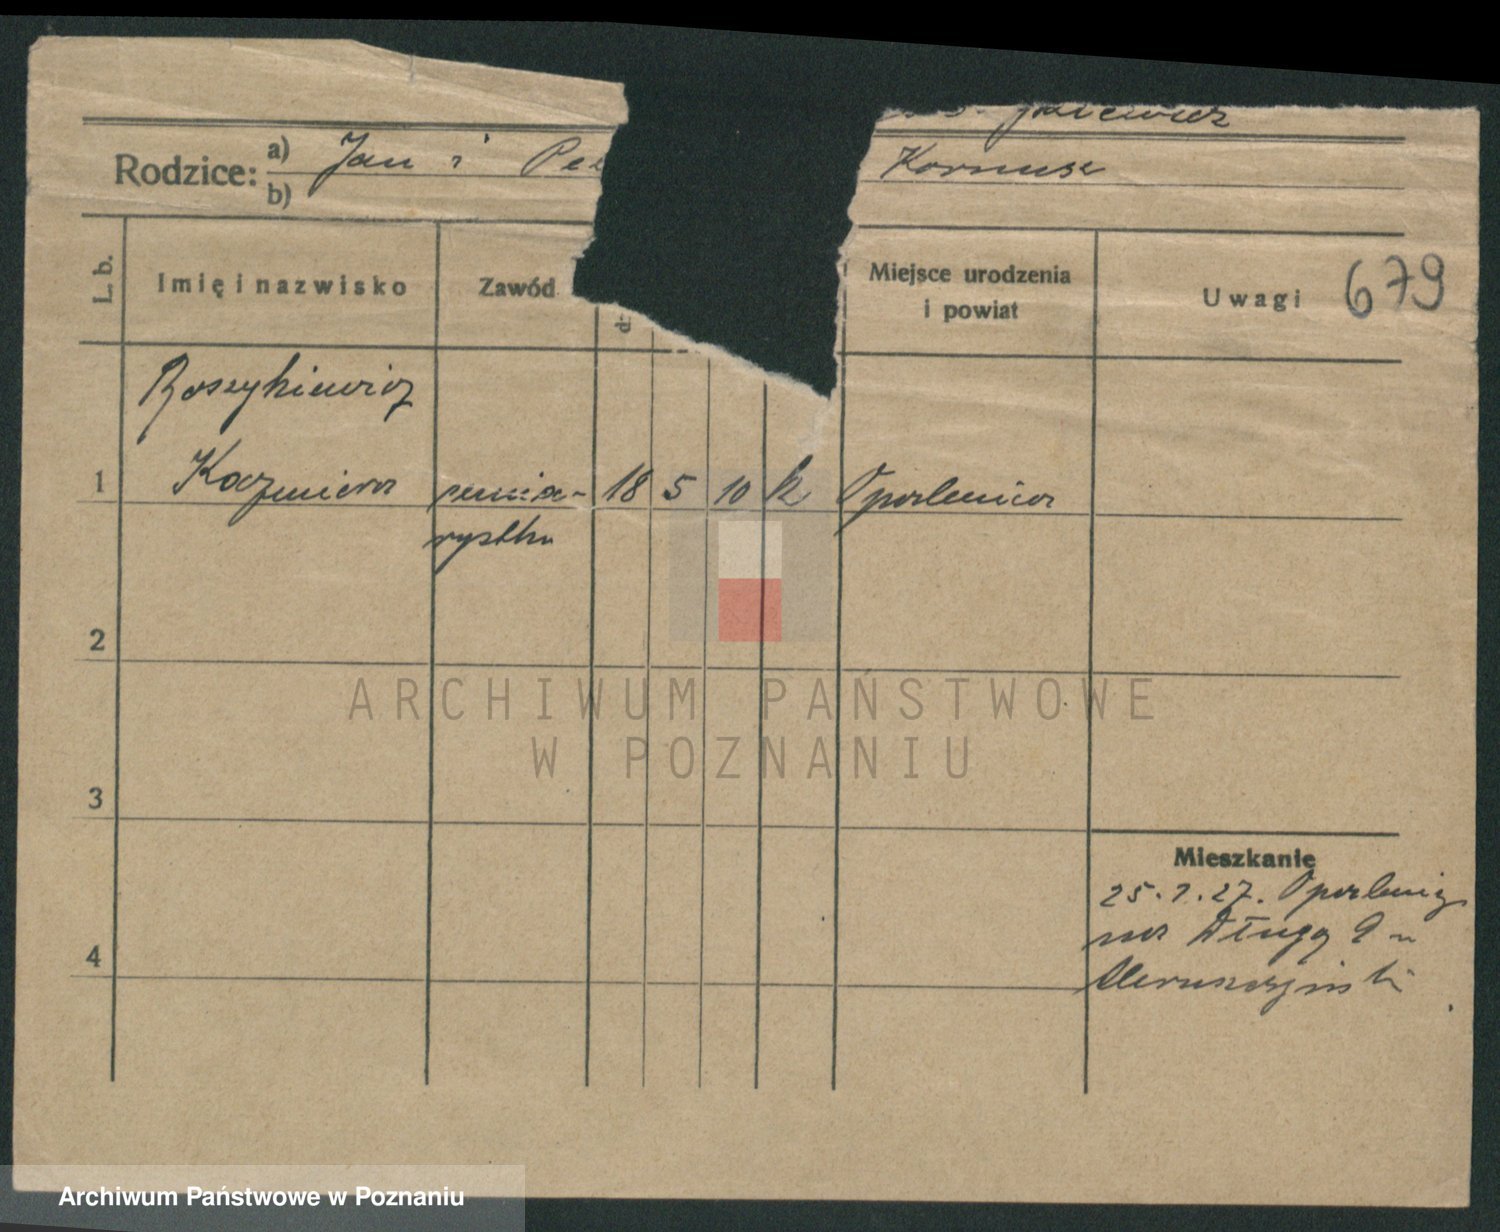 Rodzice:
a) Jan i Pe
Kornusz
b)
L. b.
Imię i nazwisko
Zawód
Miejsce urodzenia
i powiat
Uwagi
679
Roszykiewicz
1 Kazmiera 18 5 10 k Opalenica
rystka
2
3
4
Mieszkanie
25.7.27. Opalenic
na Długa 9
ARCHIWUM PAŃSTWOWE
W POZNANIU
Archiwum Państwowe w Poznaniu